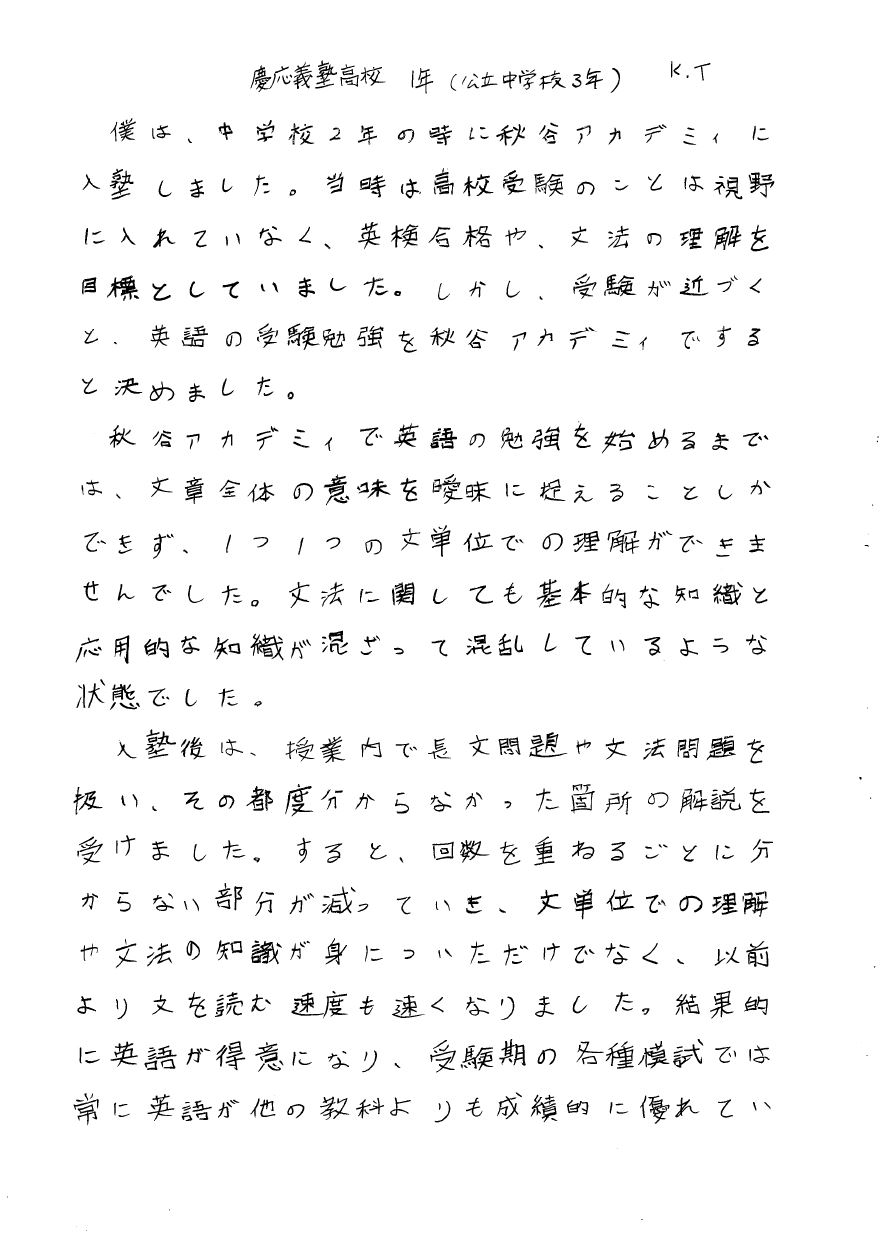 慶応義塾高校 1年(公立中学校3年) K.T
僕は、中学校2年の時に秋谷アカデミィに
入塾しました。当時は高校受験のことは視野
に入れていなく、英検合格や、文法の理解を
目標としていました。しかし、受験が近づく
と、英語の受験勉強を秋谷アカデミィでする
と決めました。
秋谷アカデミィで英語の勉強を始めるまで
は、文章全体の意味を曖昧に捉えることしか
できず、1つ1つの文単位での理解ができま
せんでした。文法に関しても基本的な知織と
応用的な知織が混ざって混乱しているような
状態でした。
入塾後は、授業内で長文問題や文法問題を
扱い、その都度分からなかった箇所の解説を
受けました。すると、回数を重ねるごとに分
からない部分が減っていき、文単位での理解
や文法の知識が身についただけでなく、以前
より文を読む速度も速くなりました。結果的
に英語が得意になり、受験期の各種模試では
常に英語が他の教科よりも成績的に優れてい